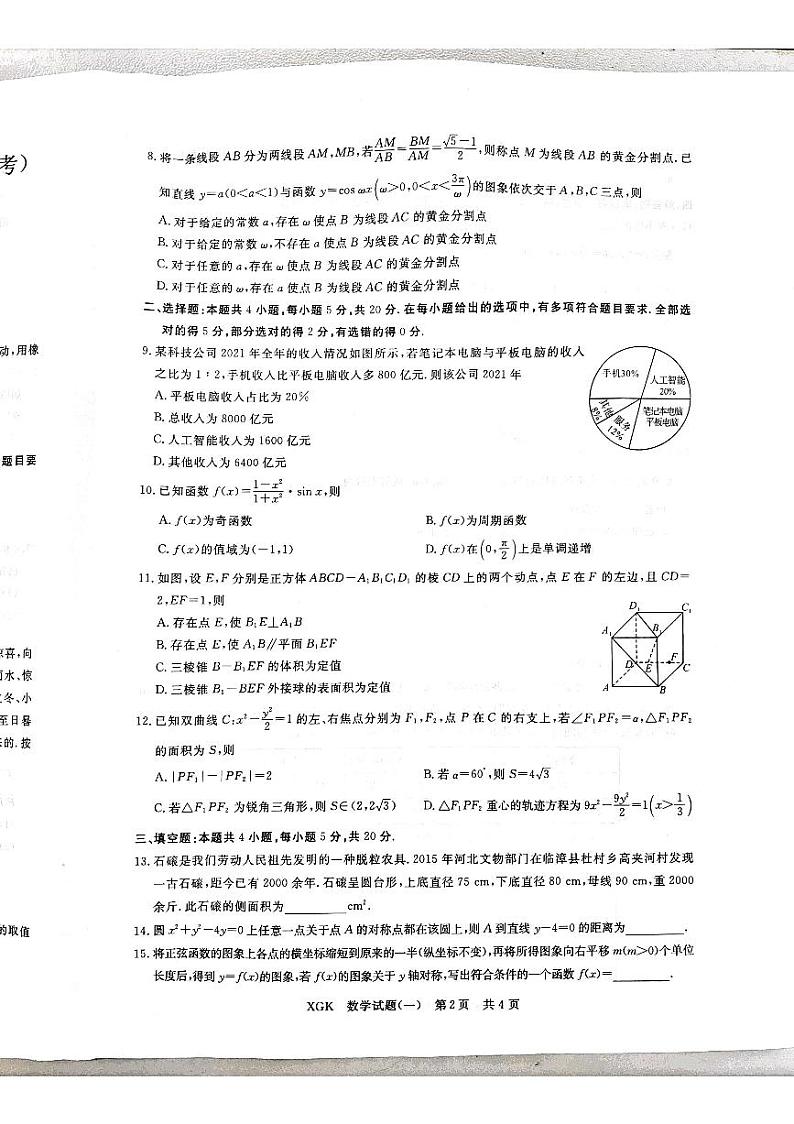 考)
8.将一条线段 AB 分为两线段 AM,MB,若AM/AB=BM/AM=(√5-1)/2,则称点 M 为线段 AB 的黄金分割点.已
知直线 y=a(0<a<1)与函数 y=cos ωx(ω>0,0<x<3π/ω)的图象依次交于 A,B,C 三点,则
A.对于给定的常数 a,存在 ω 使点 B 为线段 AC 的黄金分割点
B.对于给定的常数 ω,不存在 a 使点 B 为线段 AC 的黄金分割点
C.对于任意的 a,存在 ω 使点 B 为线段 AC 的黄金分割点
D.对于任意的 ω,存在 a 使点 B 为线段 AC 的黄金分割点
二、选择题:本题共 4 小题,每小题 5 分,共 20 分.在每小题给出的选项中,有多项符合题目要求.全部选
对的得 5 分,部分选对的得 2 分,有选错的得 0 分.
动,用橡
9.某科技公司 2021 年全年的收入情况如图所示,若笔记本电脑与平板电脑的收入
之比为 1:2,手机收入比平板电脑收入多 800 亿元.则该公司 2021 年
A.平板电脑收入占比为 20%
B.总收入为 8000 亿元
C.人工智能收入为 1600 亿元
D.其他收入为 6400 亿元
手机30%
人工智能
20%
笔记本电脑
平板电脑
服务
12%
其他
8%
题目要
10.已知函数 f(x)=(1-x²)/(1+x²)·sin x,则
A.f(x)为奇函数
B.f(x)为周期函数
C.f(x)的值域为(-1,1)
D.f(x)在(0,π/2)上是单调递增
11.如图,设 E,F 分别是正方体 ABCD-A₁B₁C₁D₁ 的棱 CD 上的两个动点,点 E 在 F 的左边,且 CD=
2,EF=1,则
A.存在点 E,使 B₁E⊥A₁B
B.存在点 E,使 A₁B∥平面 B₁EF
C.三棱锥 B-B₁EF 的体积为定值
D.三棱锥 B₁-BEF 外接球的表面积为定值
D₁
C₁
A₁
B₁
D
E
F
C
A
B
惊喜,向
雨水、惊
立冬、小
至日晷
来的.按
12.已知双曲线 C:x²-y²/2=1 的左、右焦点分别为 F₁,F₂,点 P 在 C 的右支上,若∠F₁PF₂=α,△F₁PF₂
的面积为 S,则
A.|PF₁|-|PF₂|=2
B.若 α=60°,则 S=4√3
C.若△F₁PF₂ 为锐角三角形,则 S∈(2,2√3)
D.△F₁PF₂ 重心的轨迹方程为 9x²-9y²/2=1(x>1/3)
三、填空题:本题共 4 小题,每小题 5 分,共 20 分.
13.石磙是我们劳动人民祖先发明的一种脱粒农具.2015 年河北文物部门在临漳县杜村乡高夹河村发现
一古石磙,距今已有 2000 余年.石磙呈圆台形,上底直径 75 cm,下底直径 80 cm,母线 90 cm,重 2000
余斤.此石磙的侧面积为________cm².
的取值
14.圆 x²+y²-4y=0 上任意一点关于点 A 的对称点都在该圆上,则 A 到直线 y-4=0 的距离为________.
15.将正弦函数的图象上各点的横坐标缩短到原来的一半(纵坐标不变),再将所得图象向右平移 m(m>0)个单位
长度后,得到 y=f(x)的图象,若 f(x)的图象关于 y 轴对称,写出符合条件的一个函数 f(x)=________.
XGK 数学试题(一) 第 2 页 共 4 页